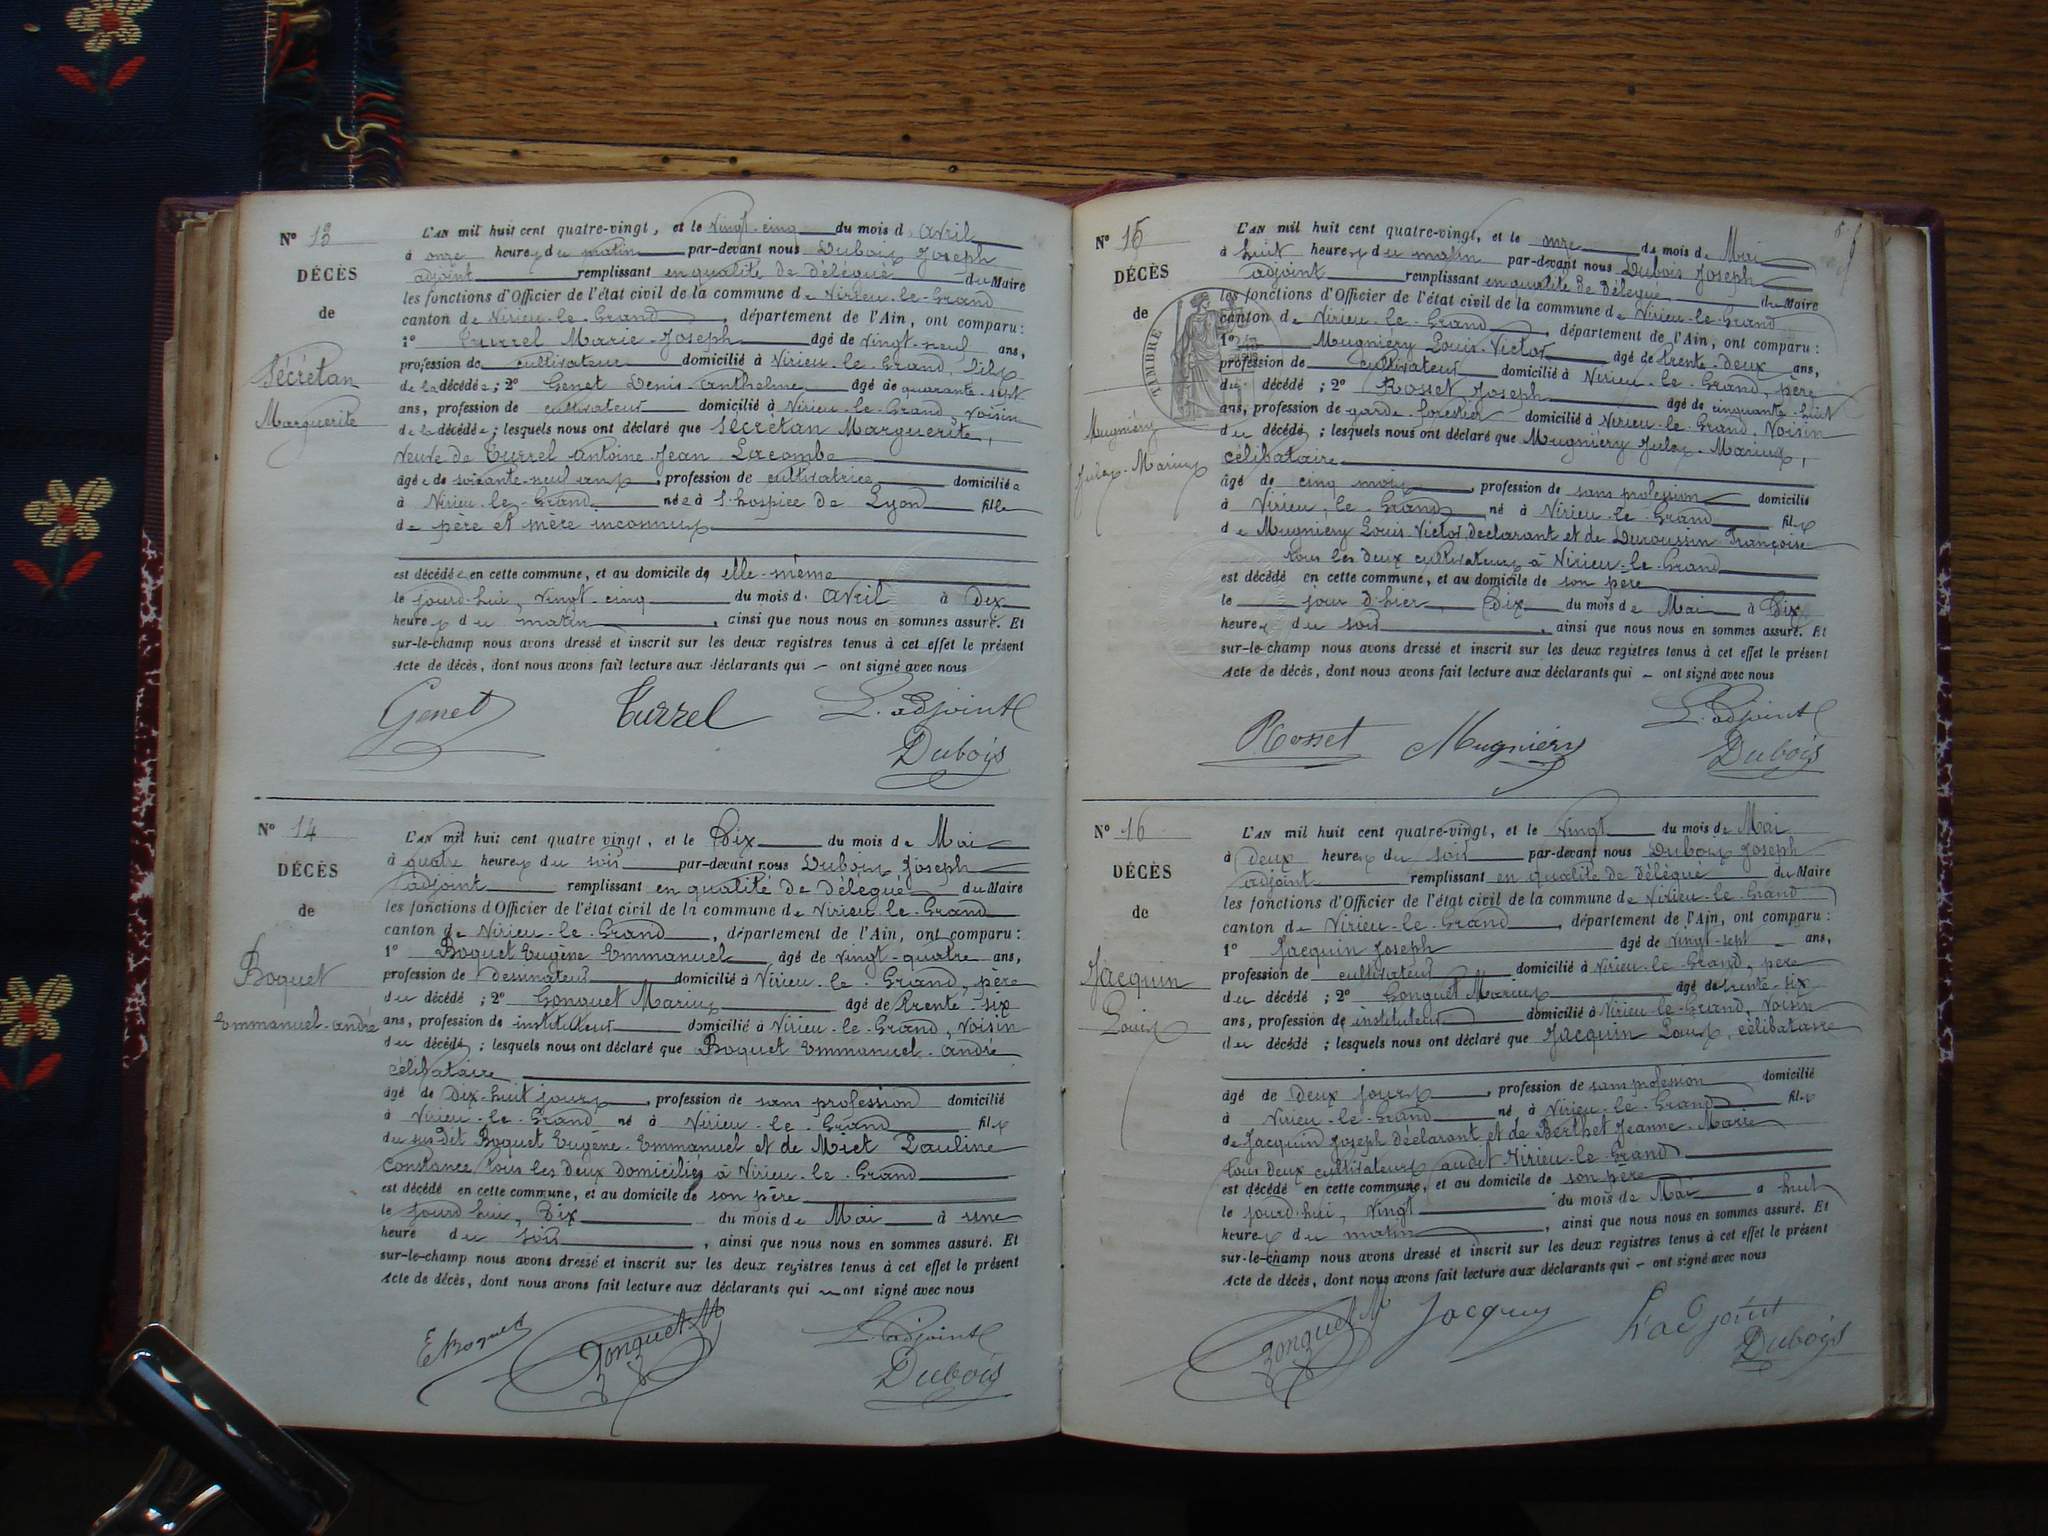 N° 13
DÉCÈS
de
Sécrétan
Marguerite
L'AN mil huit cent quatre-vingt, et le vingt-cinq du mois d'avril
à onze heures du matin par-devant nous Dubois Joseph
adjoint remplissant en qualité de délégué du Maire
les fonctions d'Officier de l'état civil de la commune de Virieu-le-Grand
canton de Virieu-le-Grand, département de l'Ain, ont comparu :
1° Turrel Marie-Joseph âgé de vingt-neuf ans,
profession de cultivateur domicilié à Virieu-le-Grand, fils
de la décédée ; 2° Genet Denis-Anthelme âgé de quarante-sept
ans, profession de cultivateur domicilié à Virieu-le-Grand, voisin
de la décédée ; lesquels nous ont déclaré que Sécrétan Marguerite,
veuve de Turrel Antoine-Jean Lacombe
âgée de soixante-neuf ans, profession de cultivatrice domiciliée
à Virieu-le-Grand née à l'hospice de Lyon fille
de père et mère inconnus
est décédée en cette commune, et au domicile de elle-même
le jourd'hui, vingt-cinq du mois d'avril à dix
heures du matin, ainsi que nous nous en sommes assuré. Et
sur-le-champ nous avons dressé et inscrit sur les deux registres tenus à cet effet le présent
Acte de décès, dont nous avons fait lecture aux déclarants qui – ont signé avec nous
Genet Turrel L'adjoint
Dubois
N° 14
DÉCÈS
de
Boquet
Emmanuel-André
L'AN mil huit cent quatre vingt, et le Dix du mois de Mai
à quatre heures du soir par-devant nous Dubois Joseph
adjoint remplissant en qualité de délégué du Maire
les fonctions d'Officier de l'état civil de la commune de Virieu-le-Grand
canton de Virieu-le-Grand, département de l'Ain, ont comparu :
1° Boquet Eugène Emmanuel âgé de vingt-quatre ans,
profession de dessinateur domicilié à Virieu-le-Grand, père
du décédé ; 2° Gonguet Marius âgé de trente-six
ans, profession de instituteur domicilié à Virieu-le-Grand, voisin
du décédé ; lesquels nous ont déclaré que Boquet Emmanuel-André
célibataire
âgé de Dix-huit jours, profession de sans profession domicilié
à Virieu-le-Grand né à Virieu-le-Grand fils
du susdit Boquet Eugène-Emmanuel et de Miet Pauline
Constance tous les deux domiciliés à Virieu-le-Grand
est décédé en cette commune, et au domicile de son père
le jourd'hui, Dix du mois de Mai à une
heure du soir, ainsi que nous nous en sommes assuré. Et
sur-le-champ nous avons dressé et inscrit sur les deux registres tenus à cet effet le présent
Acte de décès, dont nous avons fait lecture aux déclarants qui – ont signé avec nous
E Boquet Gonguet M L'adjoint
Dubois
N° 15
DÉCÈS
de
TIMBRE
Mugniéry
Jules-Marius
L'AN mil huit cent quatre-vingt, et le onze du mois de Mai
à huit heures du matin par-devant nous Dubois Joseph
adjoint remplissant en qualité de délégué du Maire
les fonctions d'Officier de l'état civil de la commune de Virieu-le-Grand
canton de Virieu-le-Grand, département de l'Ain, ont comparu :
1° Mugniéry Louis-Victor âgé de trente-deux ans,
profession de cultivateur domicilié à Virieu-le-Grand, père
du décédé ; 2° Rosset Joseph âgé de cinquante-huit
ans, profession de garde-forestier domicilié à Virieu-le-Grand, voisin
du décédé ; lesquels nous ont déclaré que Mugniéry Jules-Marius,
célibataire
âgé de cinq mois, profession de sans profession domicilié
à Virieu-le-Grand né à Virieu-le-Grand fils
de Mugniéry Louis-Victor déclarant et de Duroussin Françoise
tous les deux cultivateurs à Virieu-le-Grand
est décédé en cette commune, et au domicile de son père
le jour d'hier, Dix du mois de Mai à Dix
heures du soir, ainsi que nous nous en sommes assuré. Et
sur-le-champ nous avons dressé et inscrit sur les deux registres tenus à cet effet le présent
Acte de décès, dont nous avons fait lecture aux déclarants qui – ont signé avec nous
Rosset Mugniery L'adjoint
Dubois
N° 16
DÉCÈS
de
Jacquin
Louis
L'AN mil huit cent quatre-vingt, et le vingt du mois de Mai
à deux heures du soir par-devant nous Dubois Joseph
adjoint remplissant en qualité de délégué du Maire
les fonctions d'Officier de l'état civil de la commune de Virieu-le-Grand
canton de Virieu-le-Grand, département de l'Ain, ont comparu :
1° Jacquin Joseph âgé de vingt-sept ans,
profession de cultivateur domicilié à Virieu-le-Grand, père
du décédé ; 2° Gonguet Marius âgé de trente-six
ans, profession de instituteur domicilié à Virieu-le-Grand, voisin
du décédé ; lesquels nous ont déclaré que Jacquin Louis, célibataire
âgé de Deux jours, profession de sans profession domicilié
à Virieu-le-Grand né à Virieu-le-Grand fils
de Jacquin Joseph déclarant et de Berthet Jeanne-Marie
tous deux cultivateurs audit Virieu-le-Grand
est décédé en cette commune, et au domicile de son père
le jourd'hui, vingt du mois de Mai à huit
heures du matin, ainsi que nous nous en sommes assuré. Et
sur-le-champ nous avons dressé et inscrit sur les deux registres tenus à cet effet le présent
Acte de décès, dont nous avons fait lecture aux déclarants qui – ont signé avec nous
Gonguet M Jacquin L'adjoint
Dubois